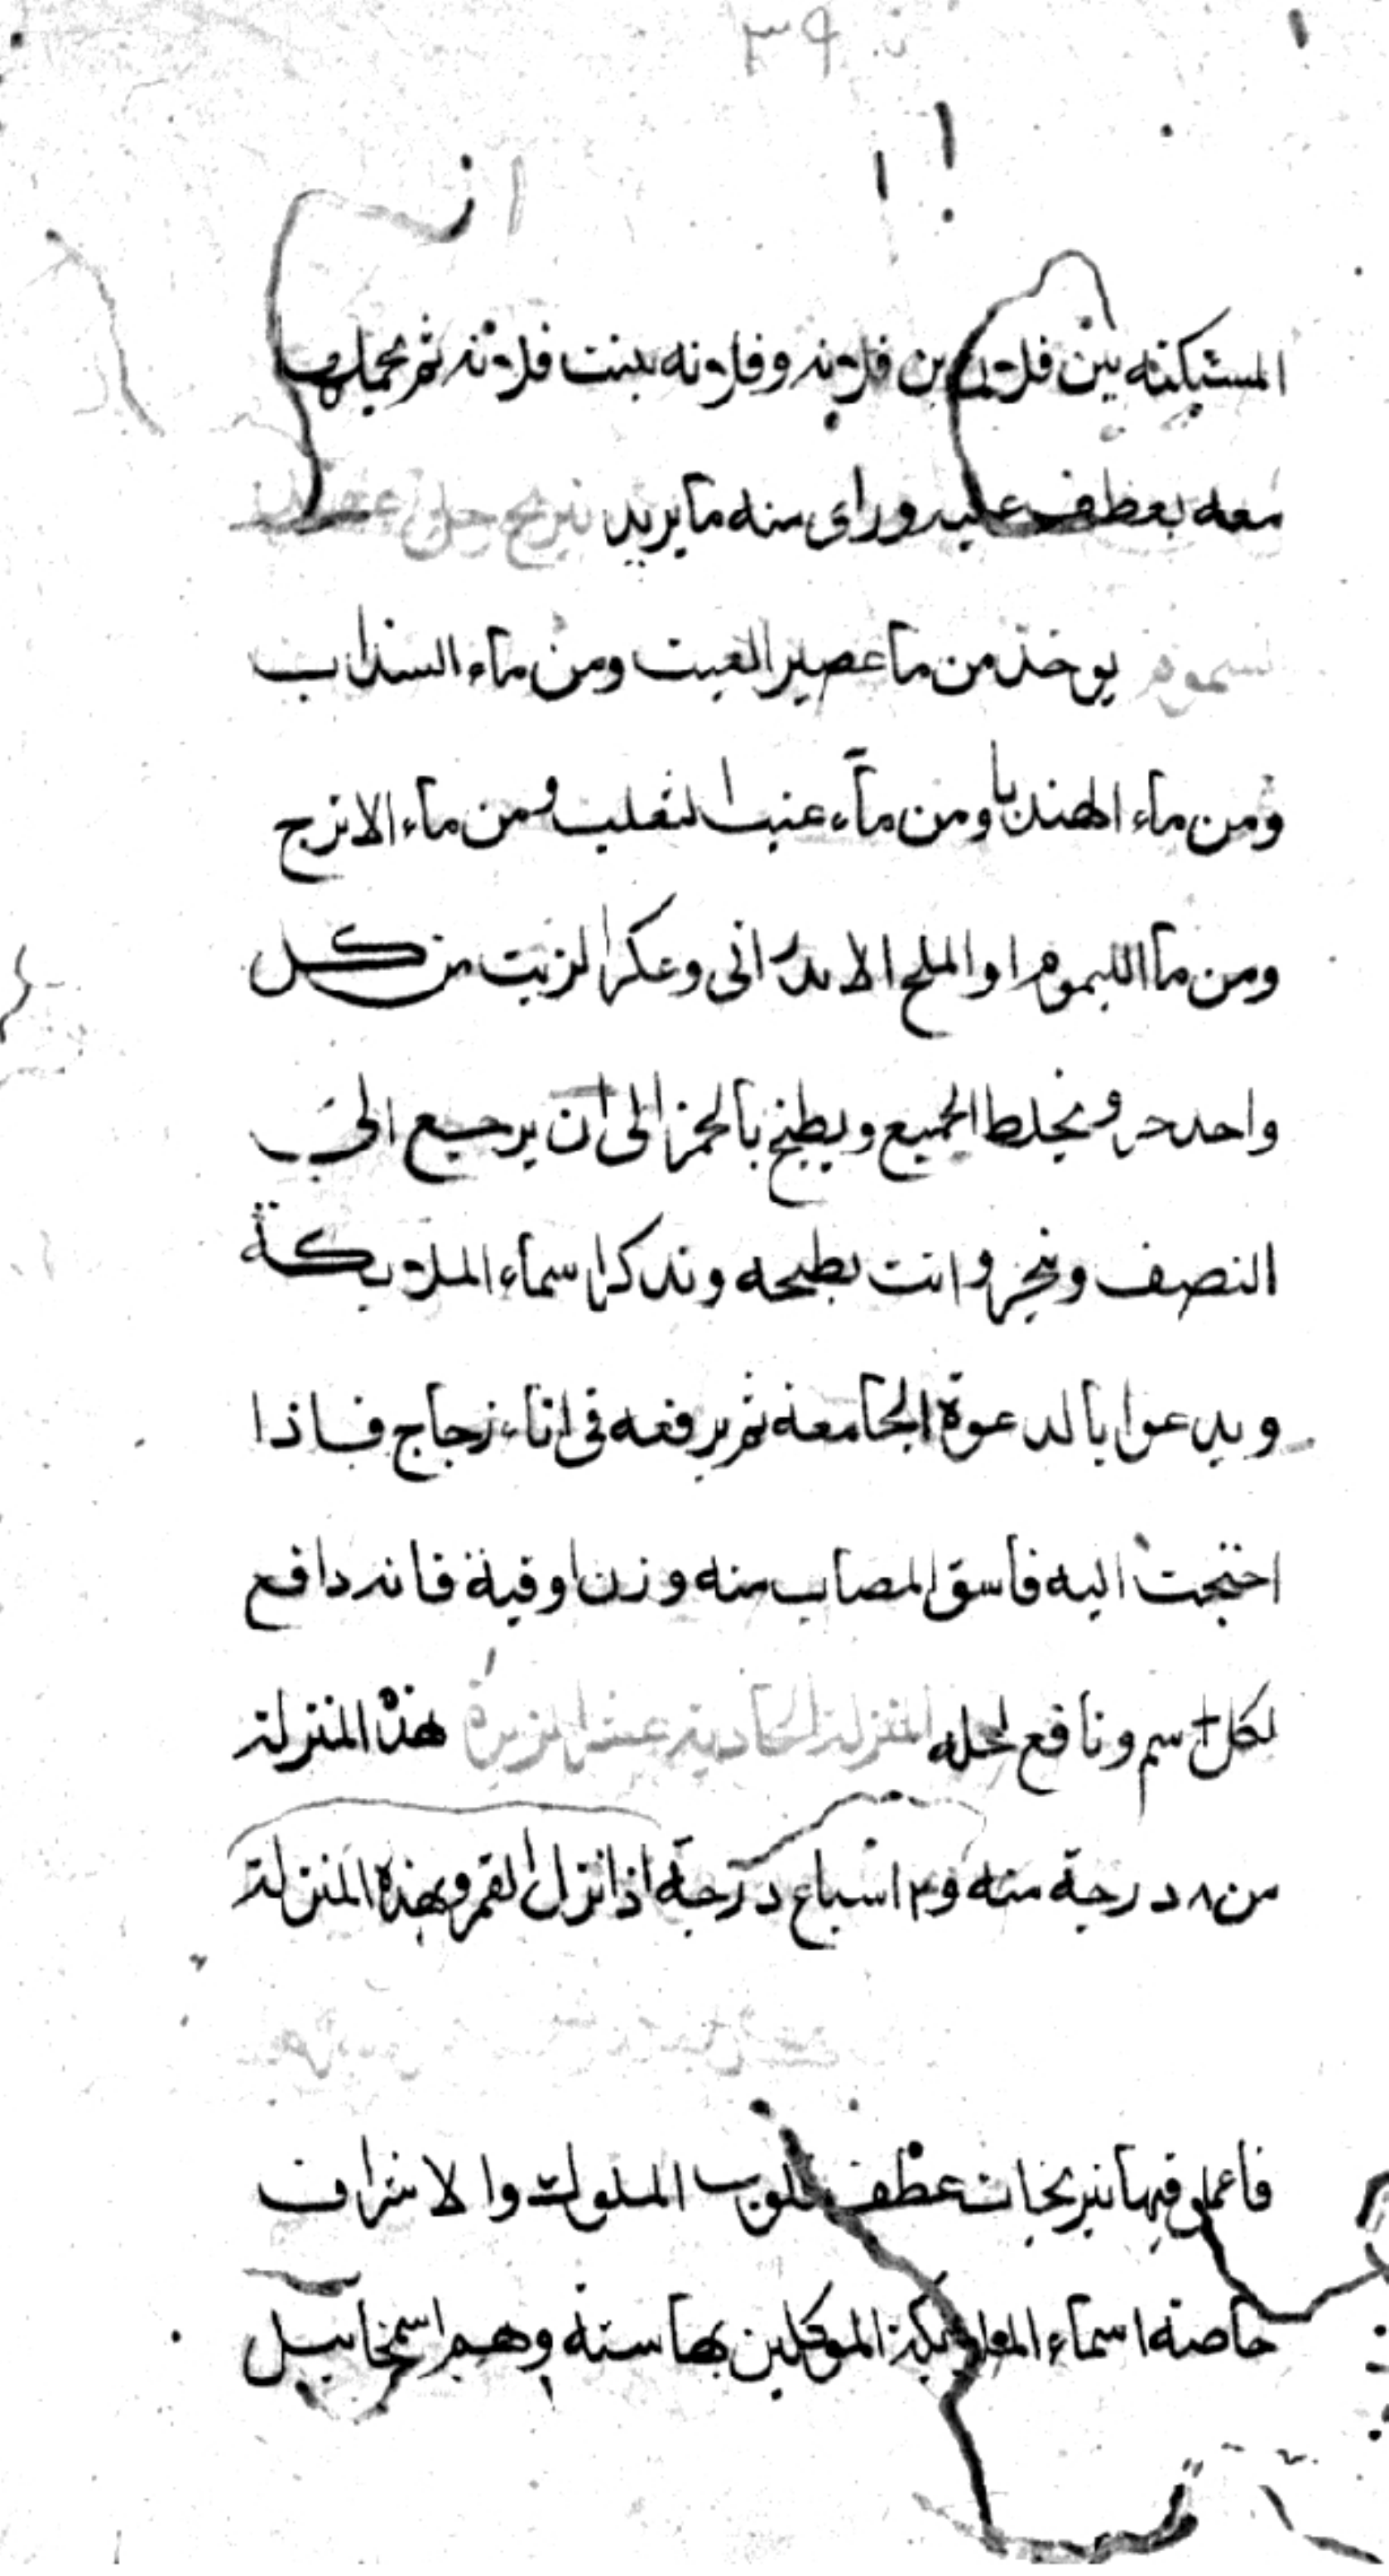 ن ٣٩
المستكنه بين فلان بن فلانه وفلانه بنت فلانه ثم يحملها
معه يعطف عليه وراى منه ما يريد نيرنج حل عقد
لسموم يوخذ من ما عصير العبت ومن ماء السنداب
ومن ماء الهندبا ومن مآء عنب الثعلب ومن ماء الاترج
ومن ما الليموم او الملح الاندرانى وعكر الزيت من كل
واحد جز ويخلط الجميع ويطبخ بالخمر الى ان يرجع الى
النصف وتبخر وانت تطبخه وتذكر اسماء الملايكة
ويدعوا بالدعوة الجامعة ثم يرفعه فى اناء زجاج فاذا
احتجت اليه فاسق المصاب منه وزن اوقية فانه دافع
لكل سم ونافع لحله المنزلة الحادية عشر الزبرة هذه المنزلة
من ٨ درجة منه و٣ اسباع درجة اذا نزل القمر وبهذه المنزلة
فاعملوفيها نيرنجات عطف قلوب الملوك والاشراف
خاصة اسماء الملايكة الموكلين بها ستة وهم اسمخاييل